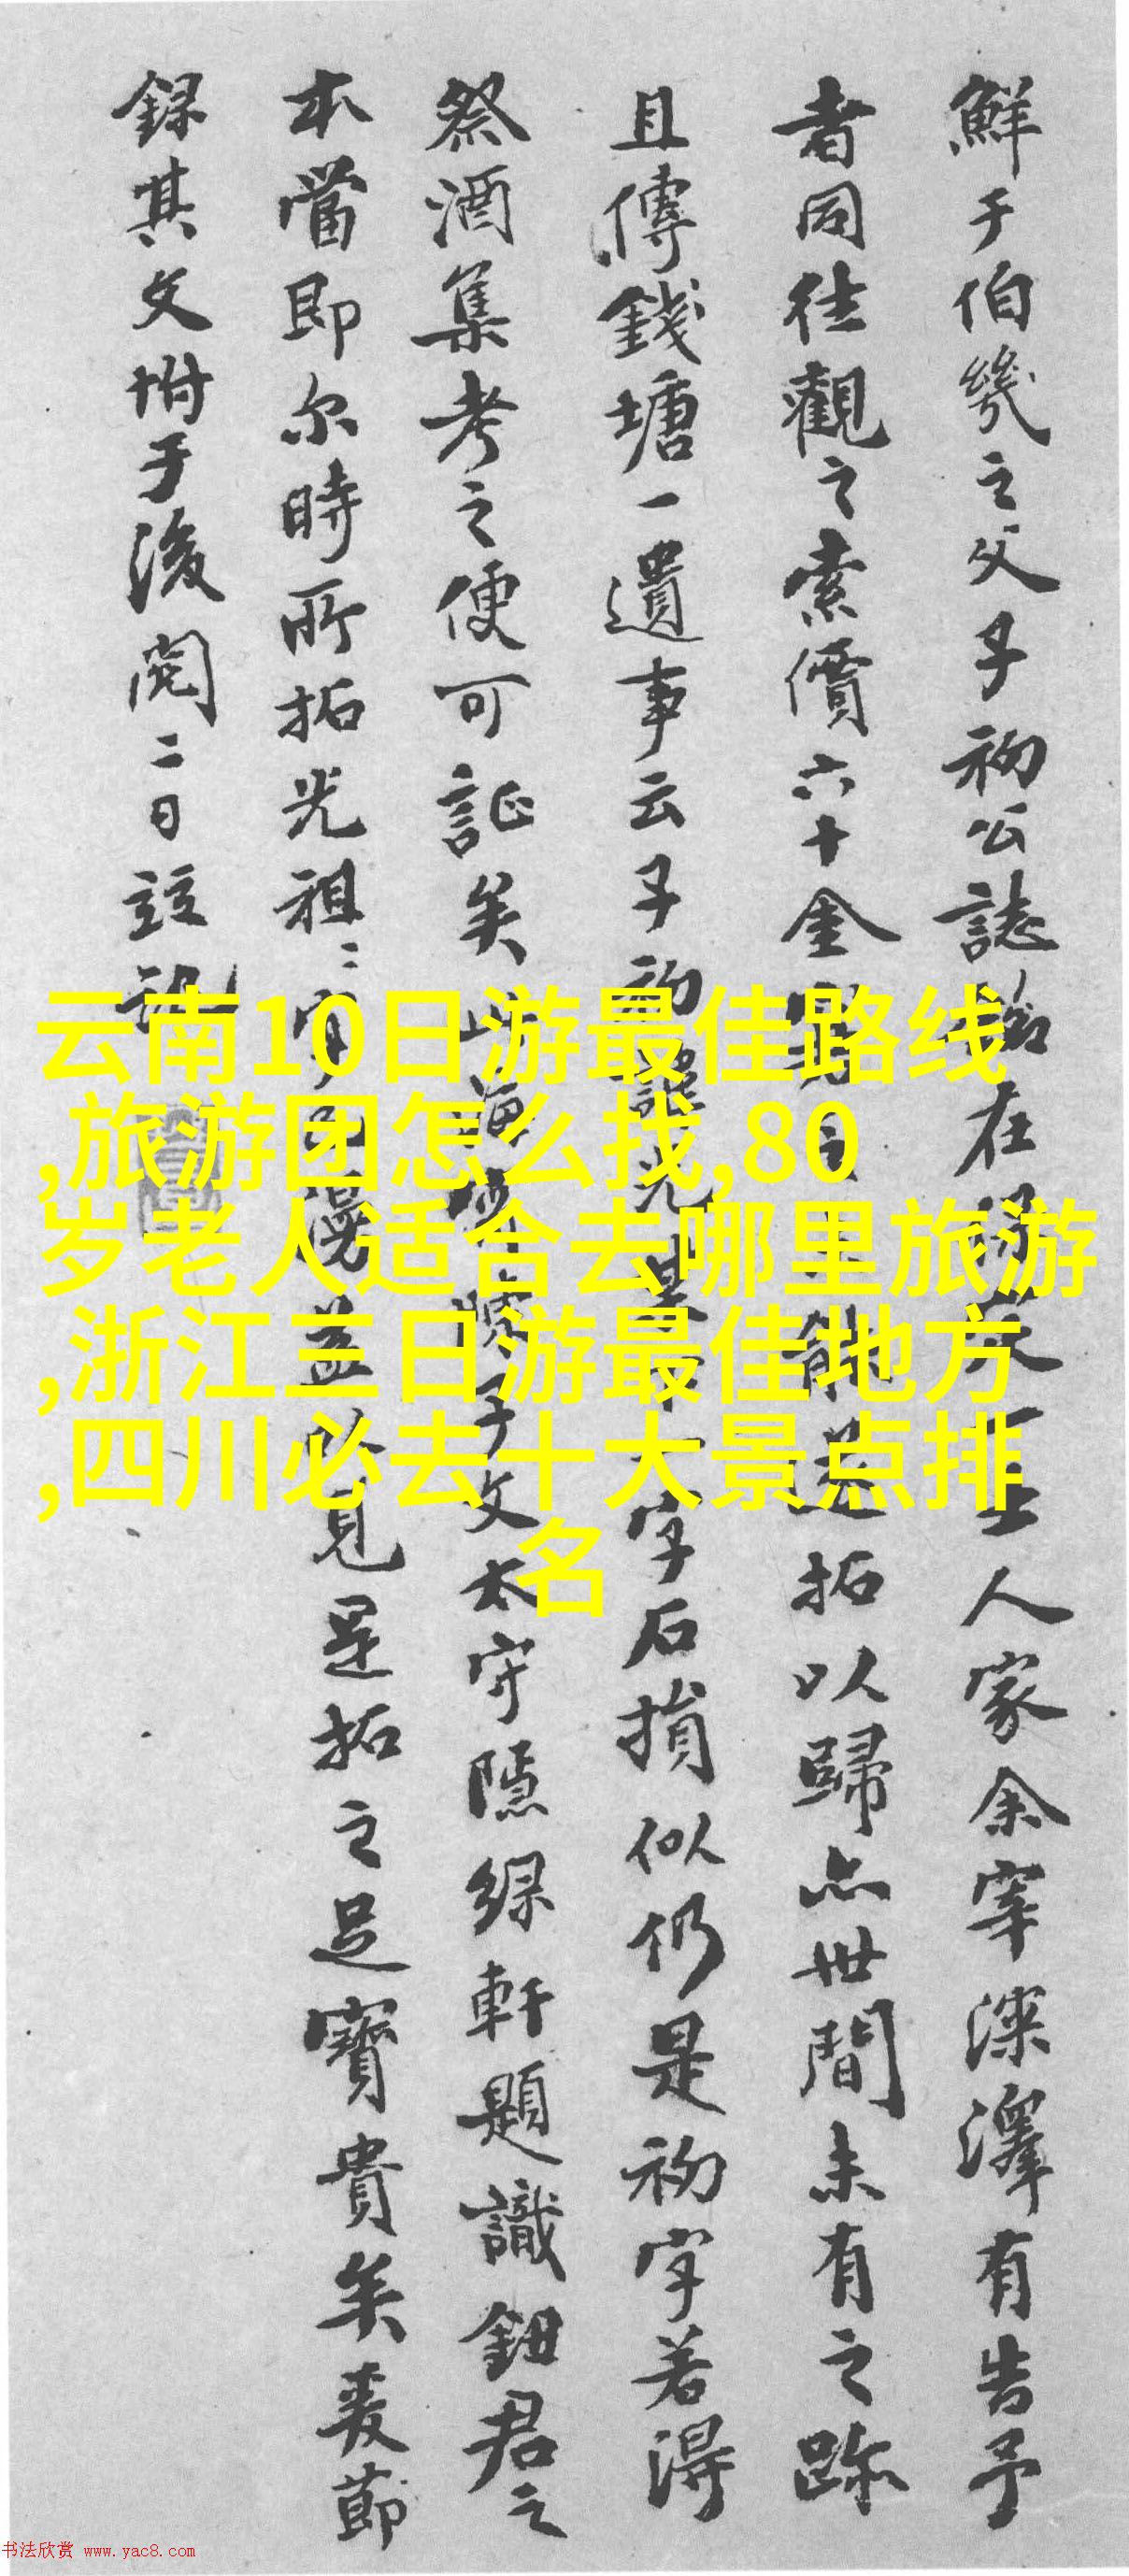 鮮于伯幾之父子初公誌銘在
人家余宰溧澤有告予
者同往觀之索價六十金
拓以歸亦世間未有之跡
且傳錢塘一遺事云子初
字石損似仍是初字若得
祭酒集考之便可証矣
子文太守隱綠軒題識鈕君之
本當即尔時所拓光祖
見是拓之足寶貴矣爰節
錄其文坿于後閏二日設記
云南10日游最佳路线
,旅游团怎么找,80
岁老人适合去哪里旅游
,浙江三日游最佳地方
,四川必去十大景点排
名
书法欣赏 www.yac8.com